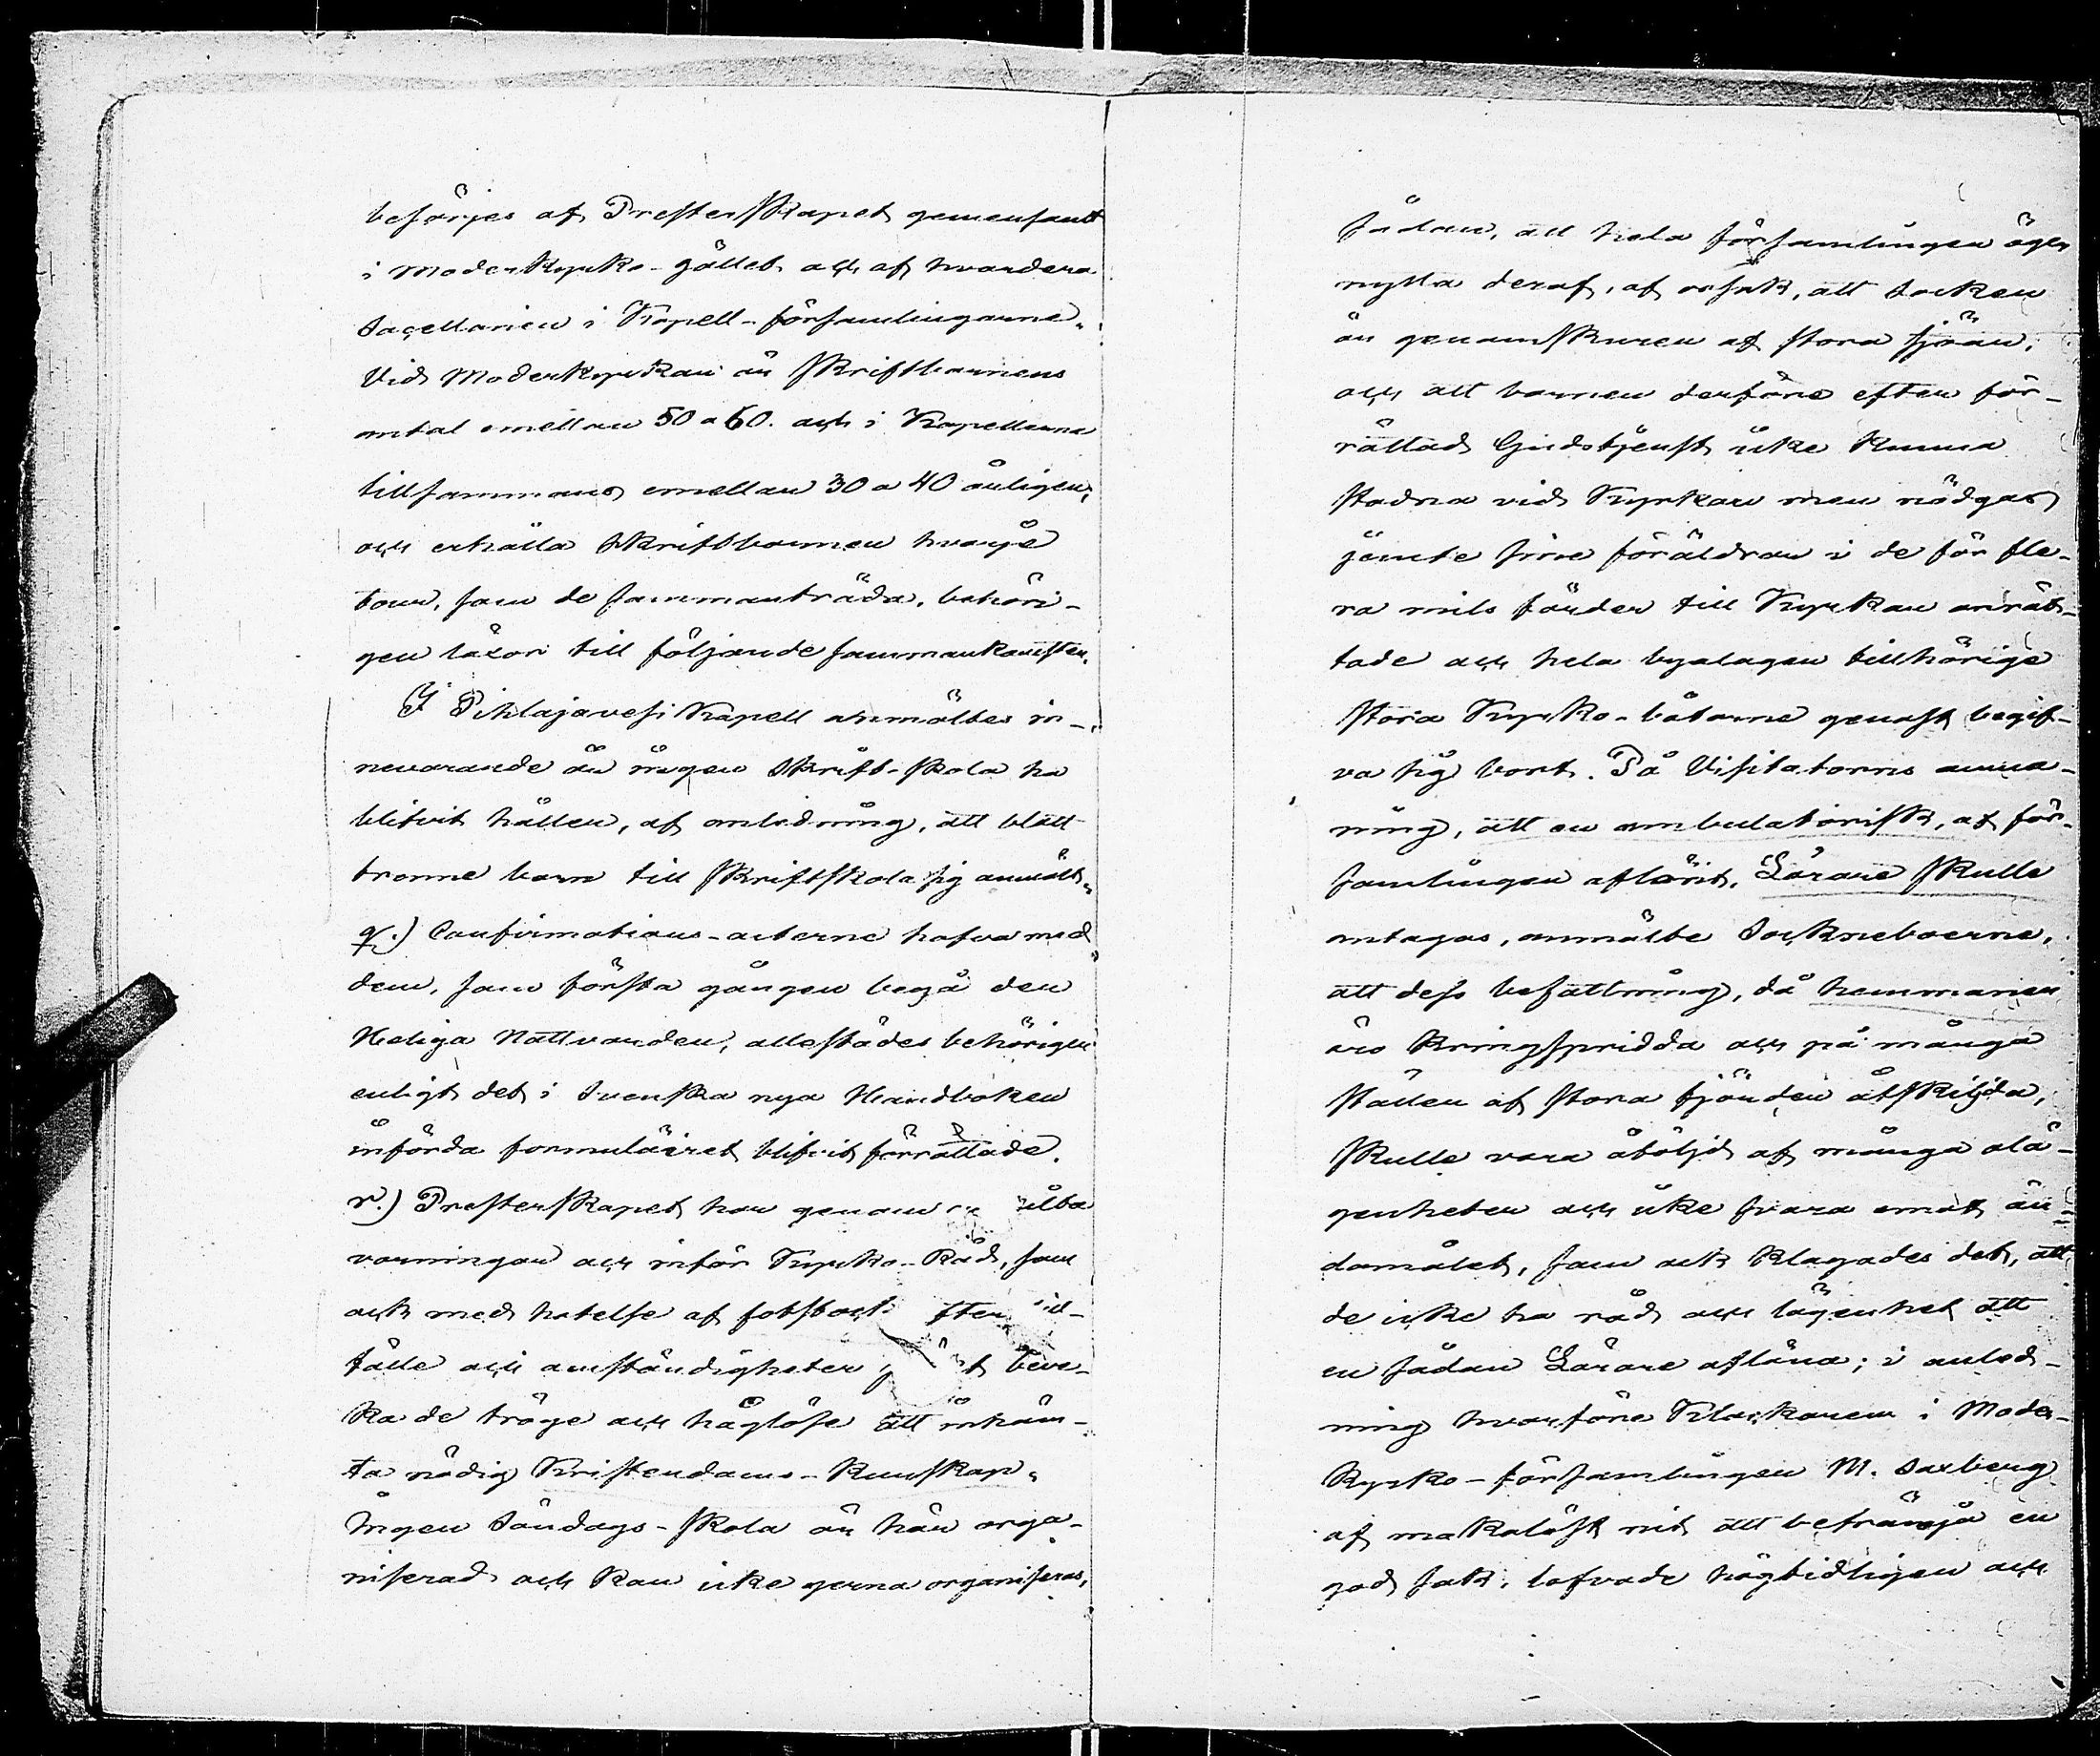 besörjes af Presterskapet gemensamt
i Moderkyrko-gället och af hvardera
Sacellanien i Kapell-församlingarne.
Vid Moderkyrkan är skriftbarnens
antal emellan 50 a 60. och i Kapellerna
tillsammans emellan 30 a 40 årligen,
och erhålla skriftbarnen hvarje
tour, som de sammanträda, behöri-
gen läxor till följande sammankomster.
I Pihlajavesi Kapell anmältes in-
nevarande år ingen Skrift-skola ha
blifvit hållen, af anledning, att blott
trenne barn till skriftskola sig anmält.
q.) Confirmations-acterne hafva med
dem, som första gången begå den
Heliga Nattvarden, allestädes behörigen
enligt det i Svenska nya Handboken
införda formuläiret blifvit förrättade.
r.) Presterskapet har genom
varningar och inför Kyrko-Råd, som
ock med hotelse af fotstock efter till-
fälle och omständigheter beve-
ka de tröge och håglöse att inhäm-
ta nödig Kristendoms-kunskap.
Ingen Söndags-skola är här orga-
niserad och kan icke gerna organiseras,
sådan, att hela församlingen äger
nytta deraf, af orsak, att Socken
är genomskuren af stora sjöar,
och att barnen derföre efter för-
rättad Gudstjenst icke kunna
stadna vid Kyrkan men nödgas
jemte sine föräldrar i de för fle-
ra mils färder till Kyrkan inrät-
tade och hela byalagen tillhörige
stora Kyrko-båtarne genast begif-
va sig bort. På Visitatorns anma-
ning, att en ambulatorisk, af för-
samlingen aflönt, Lärare skulle
antagas, anmälte Sockneboerne,
att dess befattning, då hemmanen
äro kringspridda och på många
ställen af stora fjärdar åtskiljda,
skulle vara åtöljd af många olä-
genheter och icke svara emot än-
damålet, som ock klagades det, att
de icke ha råd och lägenhet att
en sådan Lärare aflöna; i anled-
ning hvarföre Klockaren i Moder-
kyrko-församlingen M. Saxberg
af makalöst nit att befrämja en
god sak, lofvade högtidligen och